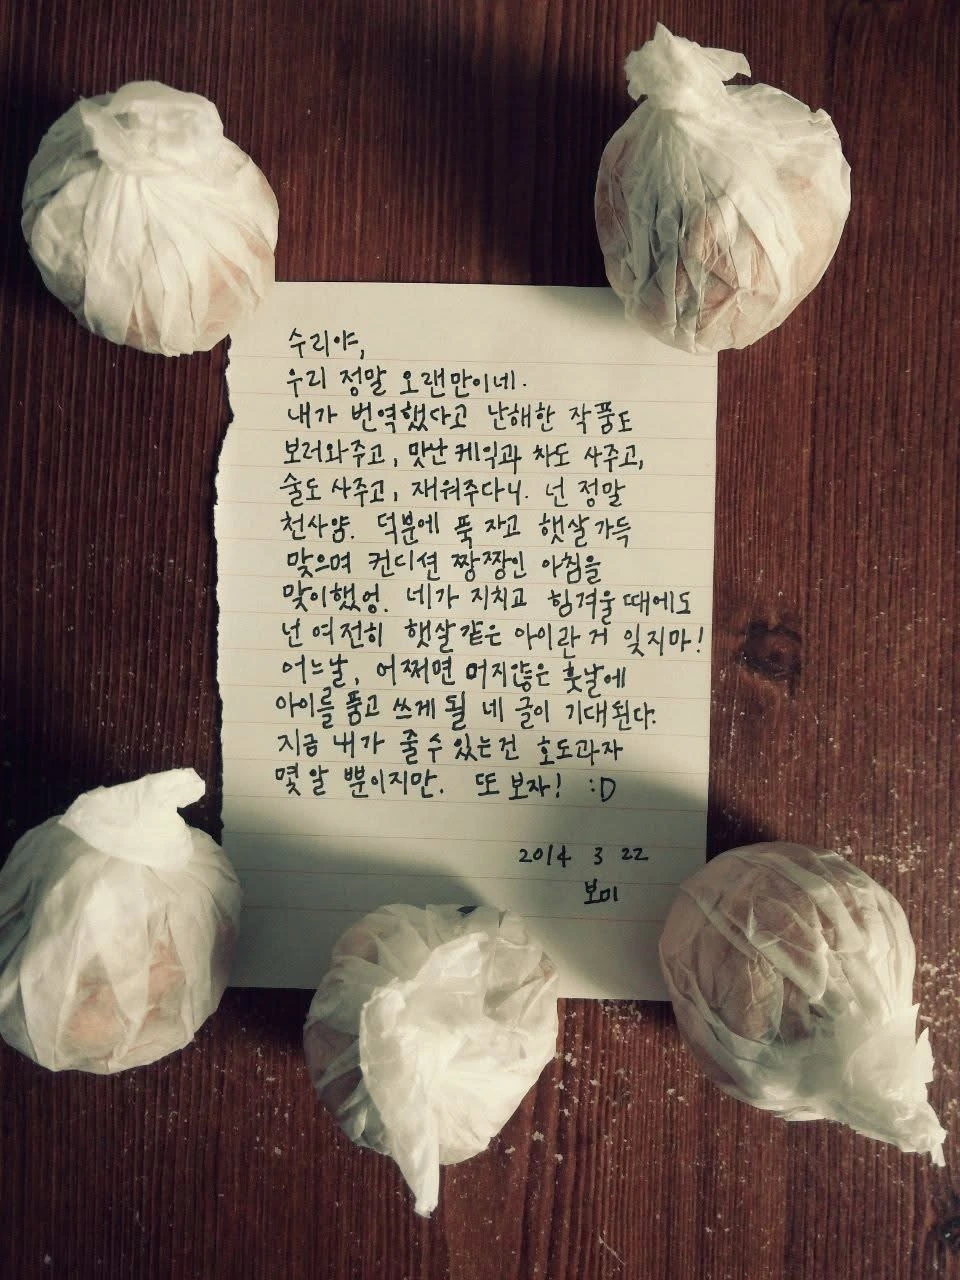 수리야,
우리 정말 오랜만이네.
내가 번역했다고 난해한 작품도
보러와주고, 맛난 케익과 차도 사주고,
술도 사주고, 재워주다니. 넌 정말
천사얌. 덕분에 푹 자고 햇살 가득
맞으며 컨디션 짱짱인 아침을
맞이했엉. 네가 지치고 힘겨울 때에도
넌 여전히 햇살같은 아이란 거 잊지마!
어느날, 어쩌면 머지않은 훗날에
아이를 품고 쓰게 될 네 글이 기대된다.
지금 내가 줄 수 있는건 호도과자
몇 알 뿐이지만. 또 보자! :D
2014 3 22
보미